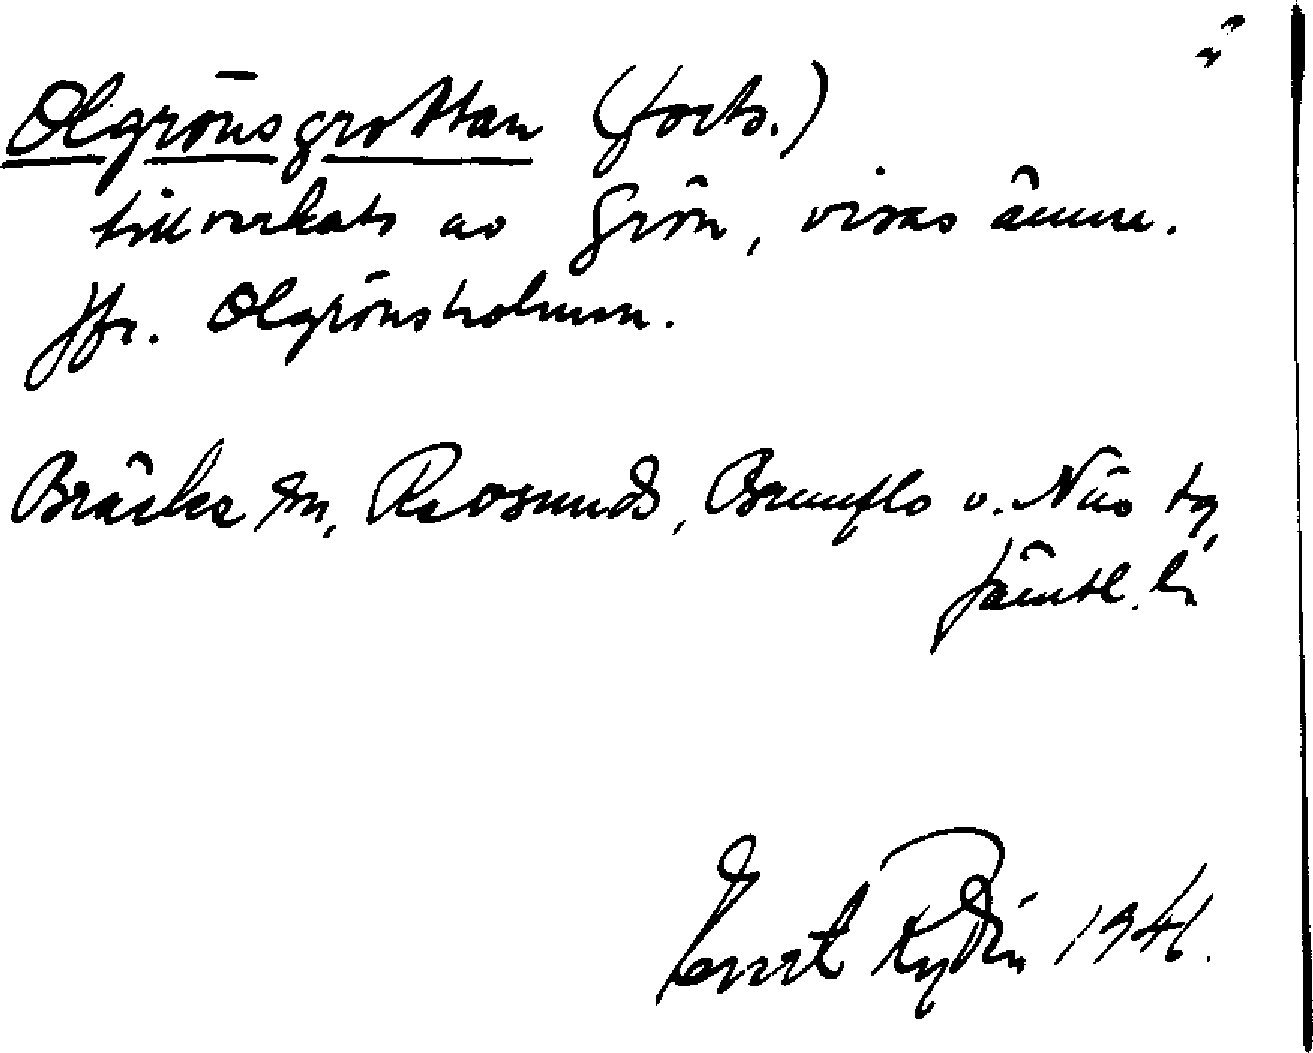 Olgrönsgrottan (forts.)
tillverkats av Grön, visas ännu.
Jfr. Olgrönsholmen.
Bräcke sn, Revsunds, Brunflo o. Näs tg,
Jämtl. l.
Ernst Rydén 1941.